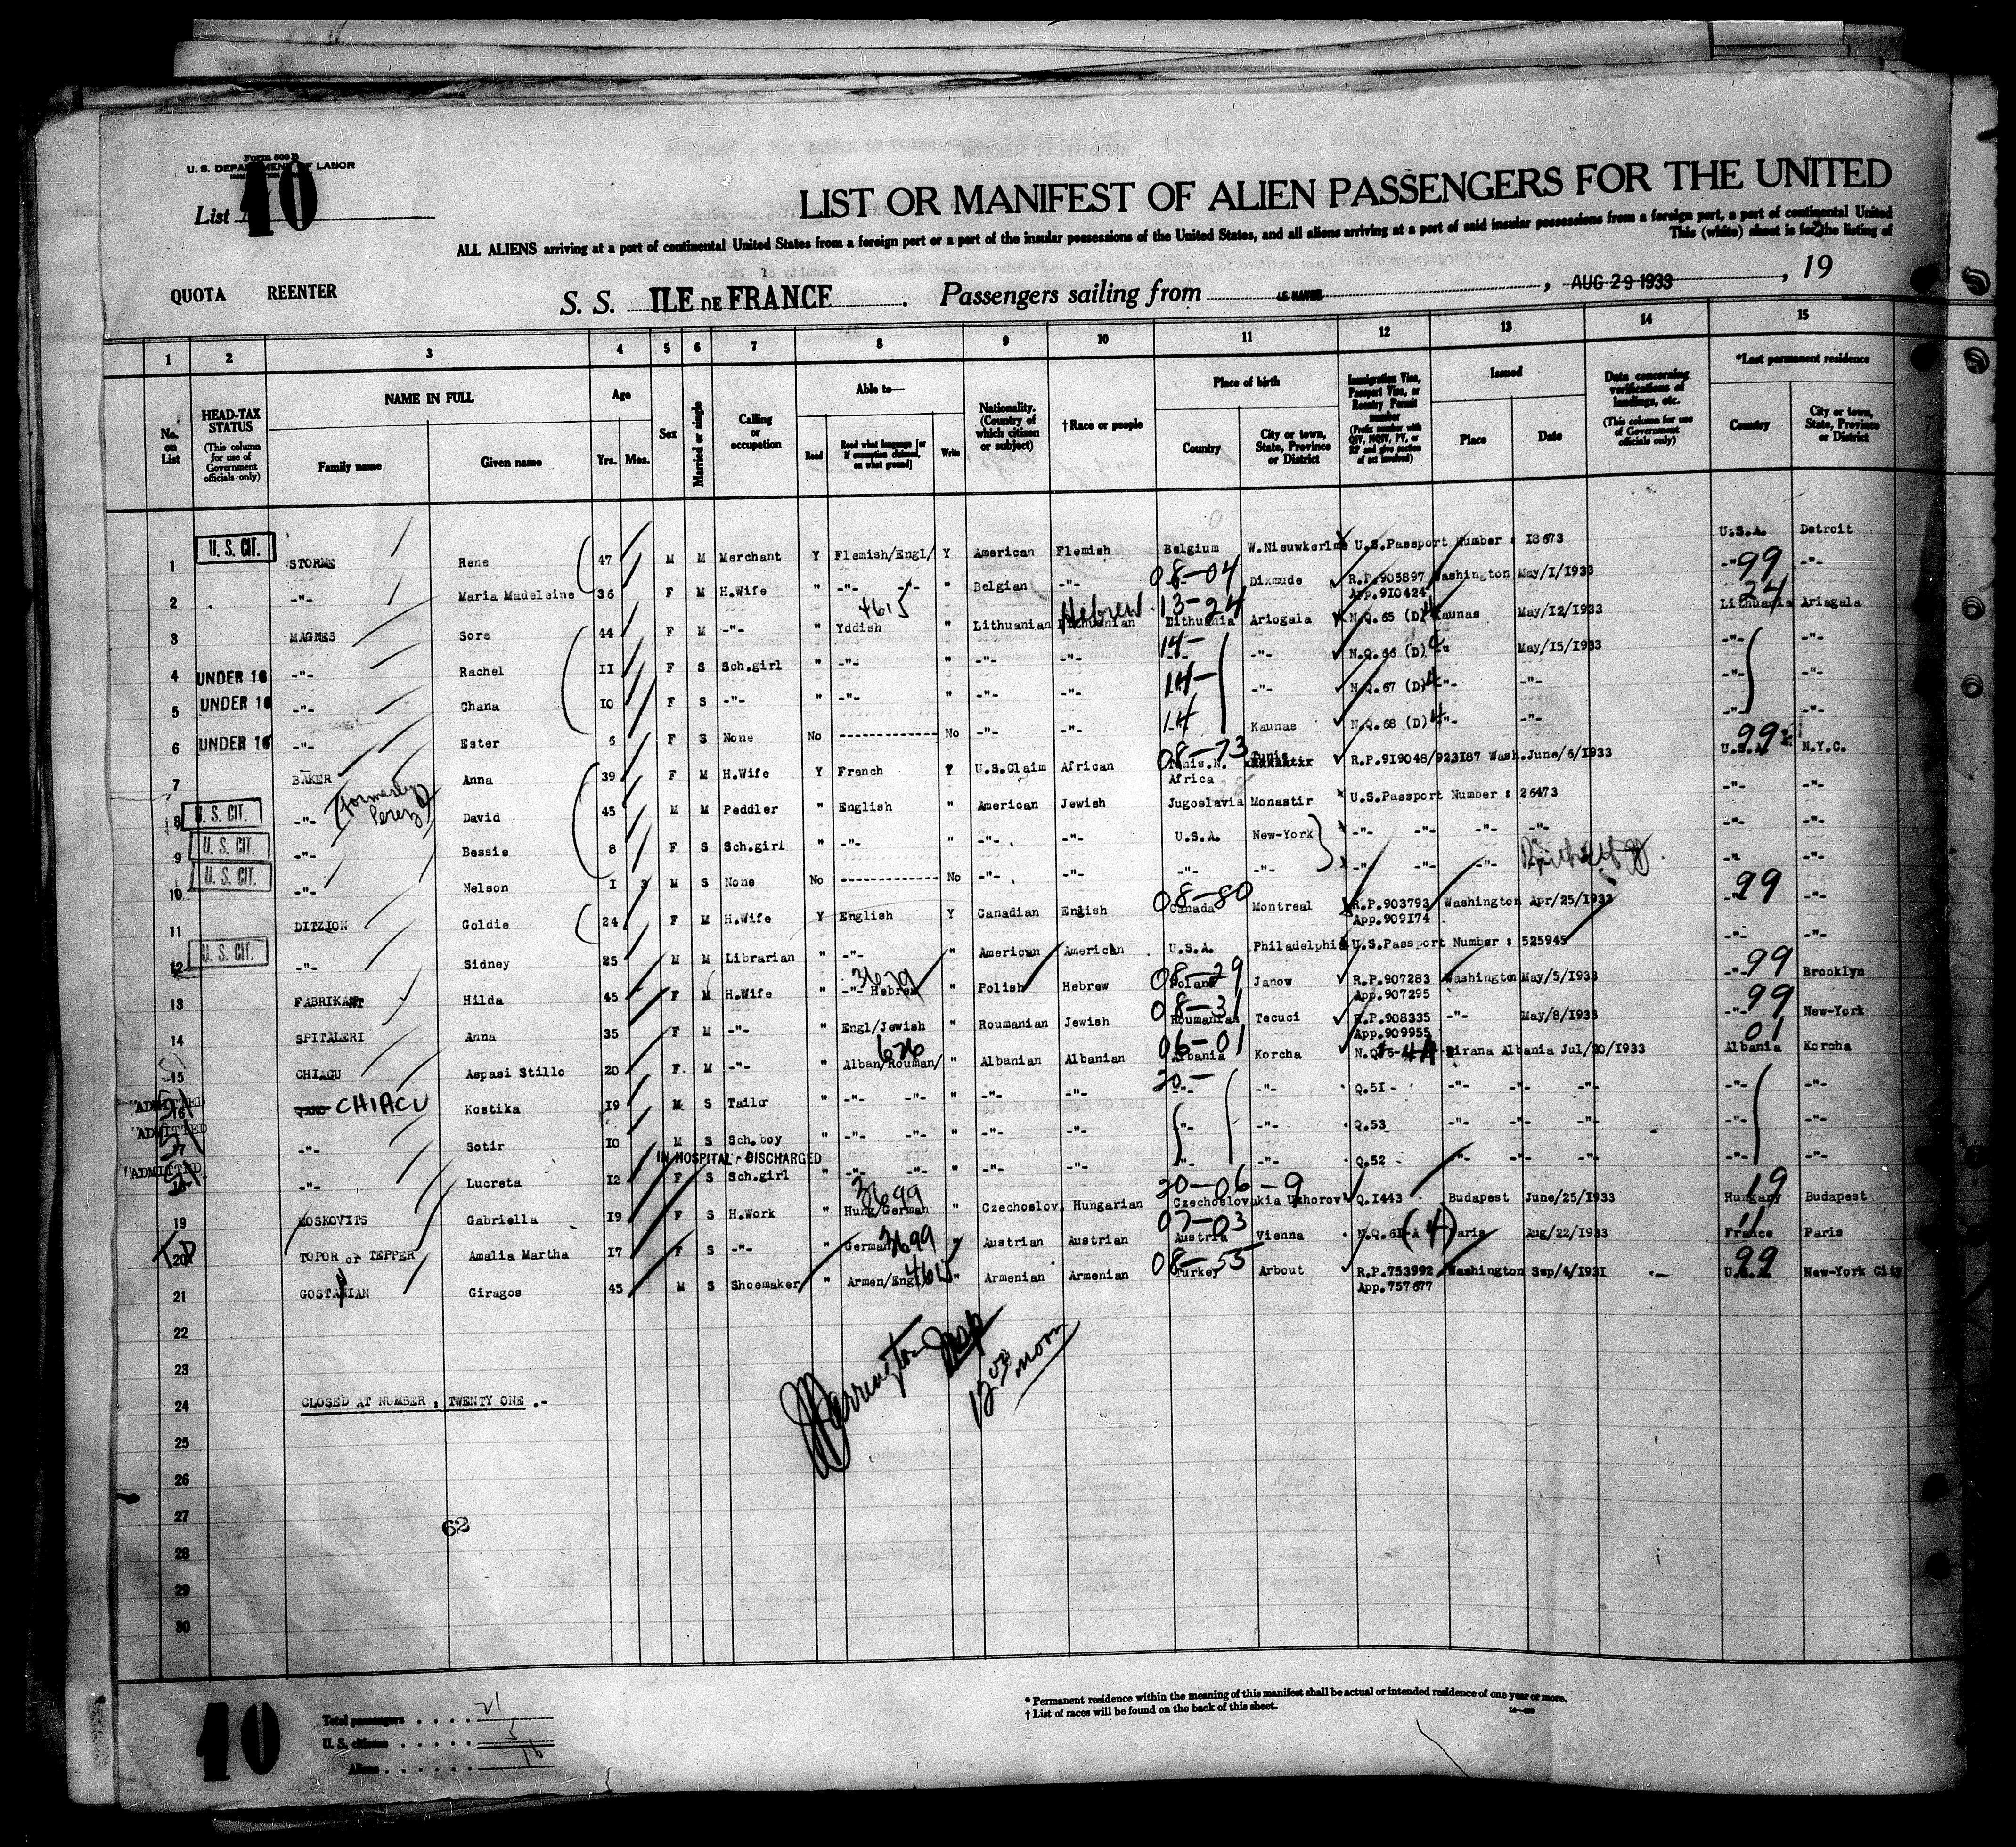 Form 500 B
U. S. DEPARTMENT OF LABOR
List 10
LIST OR MANIFEST OF ALIEN PASSENGERS FOR THE UNITED
ALL ALIENS arriving at a port of continental United States from a foreign port or a port of the insular possessions of the United States, and all aliens arriving at a port of said insular possessions from a foreign port, a port of continental United
This (white) sheet is for the listing of
QUOTA REENTER
S. S. ILE DE FRANCE. Passengers sailing from LE HAVRE, AUG 29 1933, 19
1 2 3 4 5 6 7 8 9 10 11 12 13 14 15
No. on List
HEAD-TAX STATUS (This column for use of Government officials only)
NAME IN FULL
Family name Given name
Age
Yrs. Mos.
Sex
Married or single
Calling or occupation
Able to—
Read Read what language [or if exemption claimed, on what ground] Write
Nationality. (Country of which citizen or subject)
† Race or people
Place of birth
Country City or town, State, Province or District
Immigration Visa, Passport Visa, or Reentry Permit number (Prefix number with QIV, NQIV, PV, or RP and give section of act involved)
Issued
Place Date
Data concerning verifications of landings, etc. (This column for use of Government officials only)
*Last permanent residence
Country City or town, State, Province or District
1 U. S. CIT. STORME Rene 47 M M Merchant Y Flemish/Engl/ Y American Flemish Belgium W.Nieuwkerlme U.S.Passport Number : 18673 U.S.A. Detroit
2 -"- Maria Madeleine 36 F M H.Wife " -"- -"- " Belgian -"- 08-04 Dixmude R.P.905897 App.910424 Washington May/1/1933 -"- 99 -"-
3 MAGNES Sora 44 F M -"- " Yddish 4615 " Lithuanian Lithuanian Hebrew 13-24 Lithuania Ariogala N.Q.65 (D) 4 Kaunas May/12/1933 24 Lithuania Ariagala
4 UNDER 16 -"- Rachel 11 F S Sch.girl " -"- " -"- -"- 14- -"- N.Q.66 (D) 4 -"- May/15/1933 -"- -"-
5 UNDER 16 -"- Chana 10 F S -"- " -"- " -"- -"- 14- -"- N.Q.67 (D) 4 -"- -"- -"- -"-
6 UNDER 16 -"- Ester 5 F S None No ------------ No -"- -"- 14 Kaunas N.Q.68 (D) 4 -"- -"- -"- -"-
7 BAKER Anna 39 F M H.Wife Y French Y U.S.Claim African 08-73 Tunis.N. Africa Tunis R.P.919048/923187 Wash.June/6/1933 99 U.S.A. N.Y.C.
8 U. S. CIT. -"- (formerly Perez) David 45 M M Peddler " English " American Jewish Jugoslavia Monastir U.S.Passport Number : 26473 -"- -"-
9 U. S. CIT. -"- Bessie 8 F S Sch.girl " -"- " -"- -"- U.S.A. New-York -"- -"- -"- -"- -"- -"-
10 U. S. CIT. -"- Nelson 1 3 M S None No ------------ No -"- -"- -"- -"- -"- -"- -"- -"- -"-
11 DITZION Goldie 24 F M H.Wife Y English Y Canadian English 08-80 Canada Montreal R.P.903793 App.909174 Washington Apr/25/1933 -"- 99 -"-
12 U. S. CIT. -"- Sidney 25 M M Librarian " -"- " American American U.S.A. Philadelphia U.S.Passport Number : 525945 -"- -"-
13 FABRIKANT Hilda 45 F M H.Wife " -"- Hebrew 3679 " Polish Hebrew 08-29 Poland Janow R.P.907283 App.907295 Washington May/5/1933 -"- 99 Brooklyn
14 SPITALERI Anna 35 F M -"- " Engl/Jewish " Roumanian Jewish 08-31 Roumanian Tecuci R.P.908335 App.909955 -"- May/8/1933 -"- 99 New-York
15 CHIACU Aspasi Stillo 20 F M -"- " Alban/Rouman/ 626 " Albanian Albanian 06-01 Albania Korcha N.Q.76-4A Tirana Albania Jul/20/1933 01 Albania Korcha
16 "ADMITTED CHIACU Kostika 19 M S Tailor " -"- -"- " -"- -"- 20- -"- -"- Q.51 - -"- -"- -"- -"- -"-
17 "ADMITTED -"- Sotir 10 M S Sch.boy " -"- -"- " -"- -"- -"- -"- Q.53 -"- -"- -"- -"- -"-
IN HOSPITAL - DISCHARGED
18 "ADMITTED -"- Lucreta 12 F S Sch.girl " -"- -"- " -"- -"- -"- -"- Q.52 -"- -"- -"- -"- -"-
19 MOSKOVITS Gabriella 19 F S H.Work " Hung/German 3699 " Czechoslov. Hungarian 20-06-9 Czechoslovakia Uzhorov Q.1443 Budapest June/25/1933 19 Hungary Budapest
20 TOPOR or TEPPER Amalia Martha 17 F S -"- " German 3699 " Austrian Austrian 07-03 Austria Vienna N.Q.61-A (4) Paris Aug/22/1933 11 France Paris
21 GOSTANIAN Giragos 45 M S Shoemaker " Armen/Engl 4615 " Armenian Armenian 08-55 Turkey Arbout R.P.753992 App.757677 Washington Sep/4/1931 99 U.S.A. New-York City
22
23
24 CLOSED AT NUMBER : TWENTY ONE .-
25
26
27
28
29
30
Warrington Insp
12 00 noon
62
10
Total passengers . . . . 21
U. S. citizens . . . . . 5
Aliens . . . . . . 16
* Permanent residence within the meaning of this manifest shall be actual or intended residence of one year or more.
† List of races will be found on the back of this sheet.